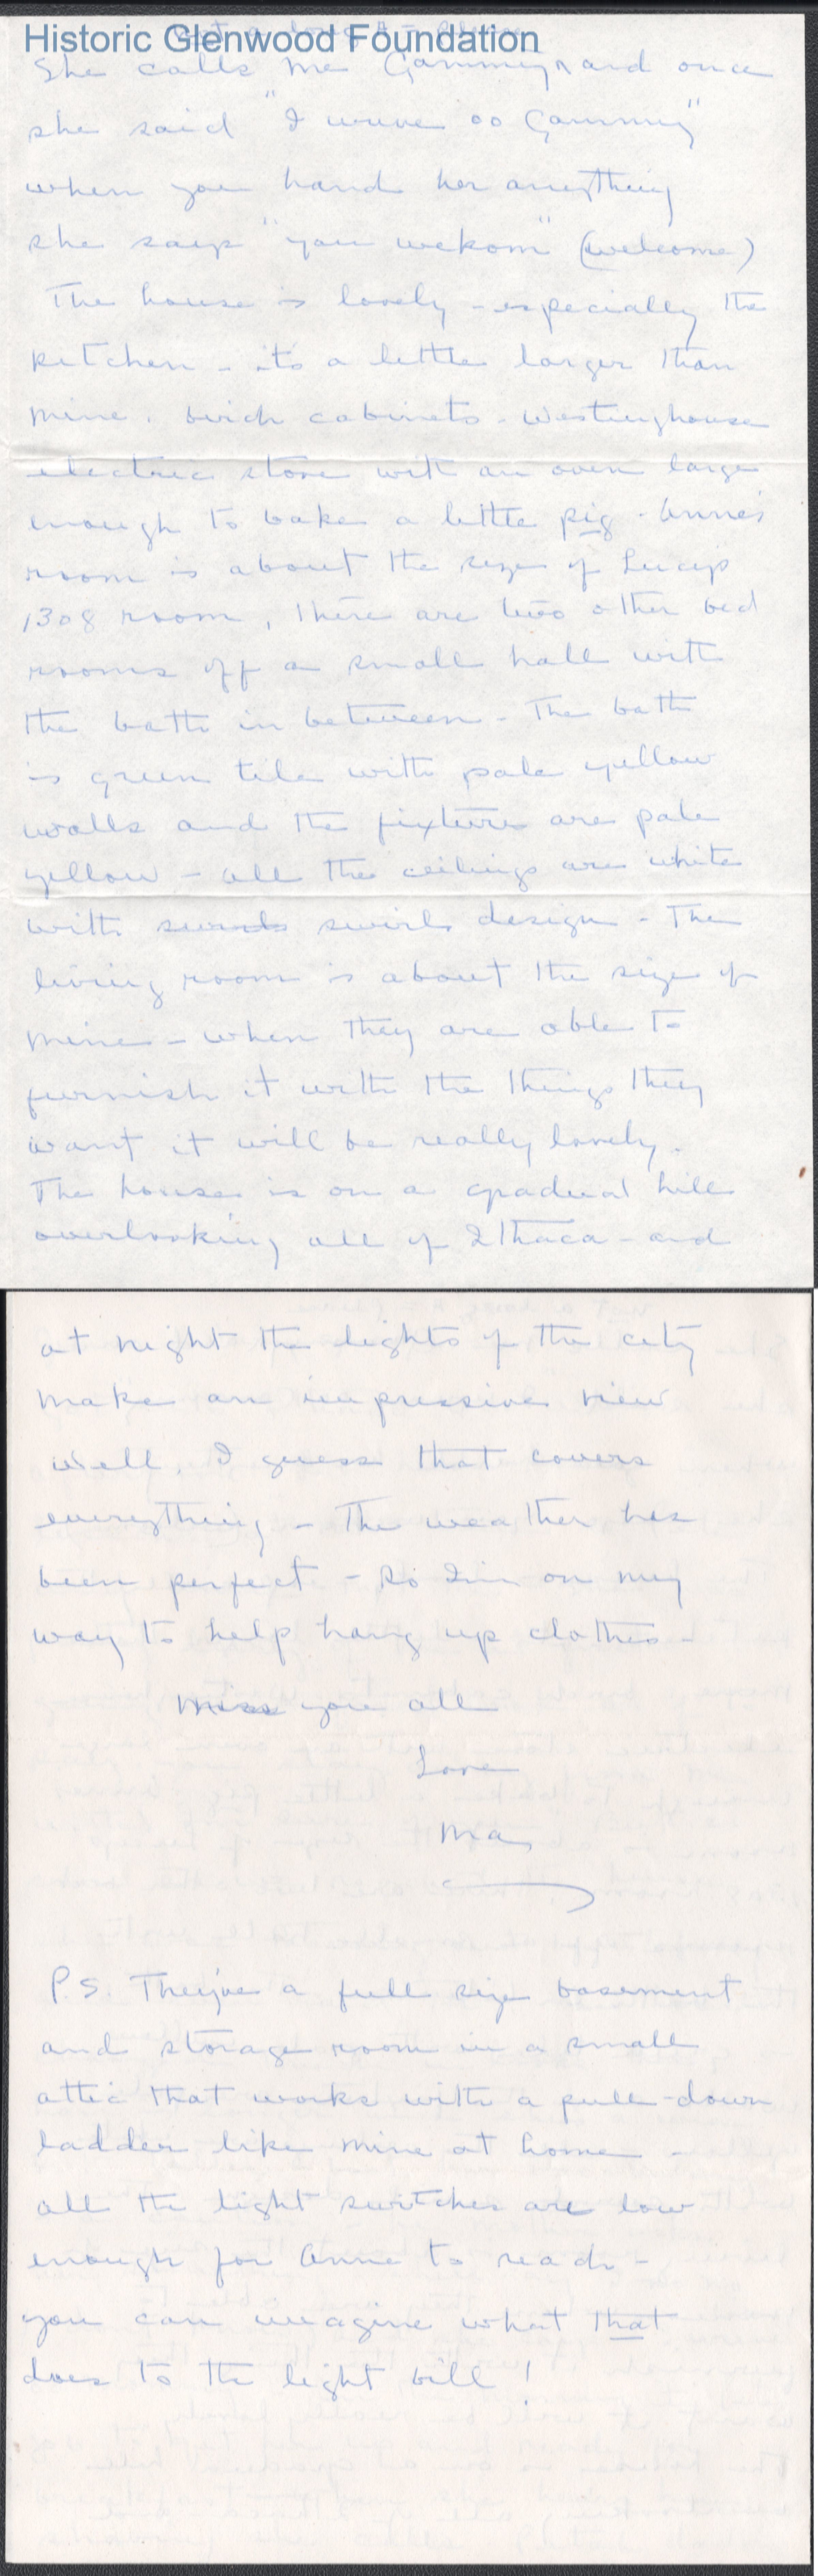 Historic Glenwood Foundation
not a long A - please
She calls me Gammy, and once
she said "I wuve oo Gammy"
when you hand her anything
she says "you wekom" (welcome)
The house is lovely - especially the
kitchen - its a little larger than
mine. birch cabinets - Westinghouse
electric stove with an oven large
enough to bake a little pig - Anne's
room is about the size of Lucy's
1308 room, there are two other bed
rooms off a small hall with
the bath in between - The bath
is green tile with pale yellow
walls and the fixtures are pale
yellow - all the ceilings are white
with swirls design - The
living room is about the size of
mine - when they are able to
furnish it with the things they
want it will be really lovely.
The house is on a gradual hill
overlooking all of Ithaca - and
at night the lights of the city
make an impressive view
Well, I guess that covers
everything - The weather has
been perfect - so I'm on my
way to help hang up clothes -
Miss you all
Love
Ma
P.S. They've a full size basement
and storage room in a small
attic that works with a pull-down
ladder like mine at home -
all the light switches are low
enough for Anne to reach -
you can imagine what that
does to the light bill!